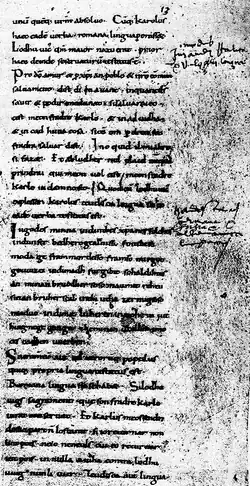 13
unū quęq; uirū absoluo. Cūq; karolus
haec eadē uerba romana lingua perorasset.
Lodhuuic qm̄ maior natu erat prior
haec deinde se seruaturū testatus est.
Pro dō amur & p xpian poblo & nro commun
saluament. dist di en auant. inquantds
sauir & podir me dunat. sisaluaraieo
cist meon fradre karlo. & in adiudha
& in cad huna cosa. sicū om p dreit son
fradra saluar dist. Ino quid il mi altre
si fazet. Et abludher nul plaid nūquā
prindrai qui meon uol cist meon fradre
karle in damno sit. Quod cū lodhuuic
explesset. karolus teudisca lingua sic h
ec eadē uerba testatus est.
Ingodes minna indinthes xpanes folches
indunser bedhero gealtnissi. fonthese
moda ge frammordesso framso mirgot
geuuizci indimadh furgibit sohaldihtes
an minan bruodher soso man mit rehtu
sinan bruher scal inthi utha zermigsoso
maduo. indimit luheren in noheinnut
hing nege gango. zheminan uuillon imo
ces cadhen uuerhen.
Sacramentū autē quod utrorumq; populus
quique propria lingua testatus est.
Romana lingua sic se habet. Silodhu
uigs sagrament. que son fradre karlo
iurat conseruat. Et karlus meossendra
desuo partn lostanit. si ioreturnar non
lint pois. neio neneuls cui eo returnar
int pois. in nulla aiudha contra lodhu
uuig nunli iuer. Teudisca autē lingua